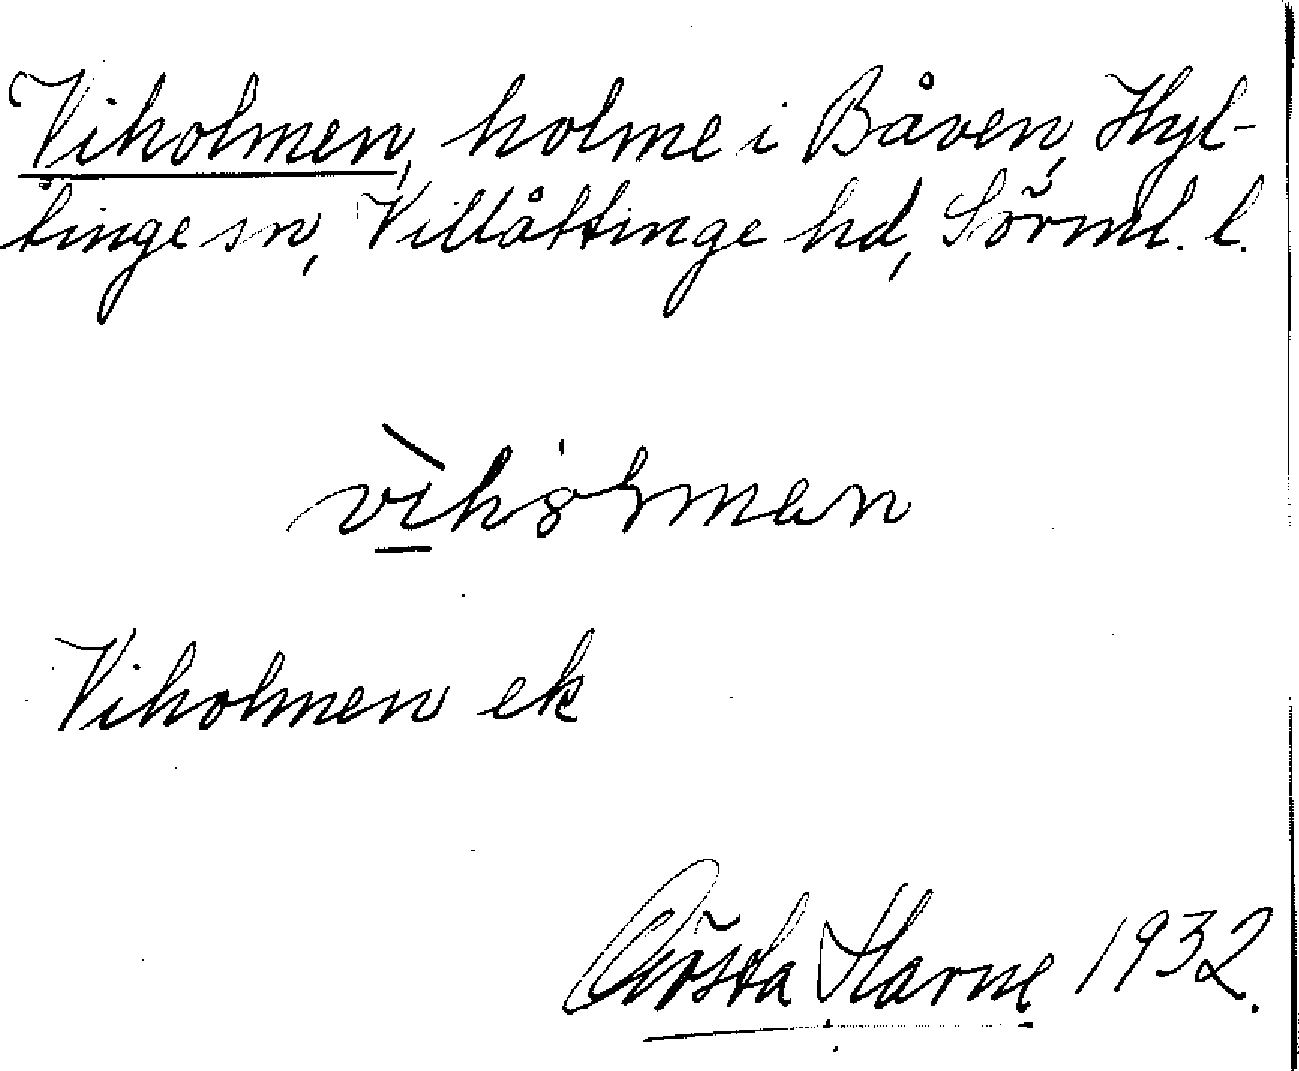 Viholmen, holme i Båven, Hyl-
tinge sn, Villåttinge hd, Sörml. l.
Viholmen ek
Gösta Harne 1932.